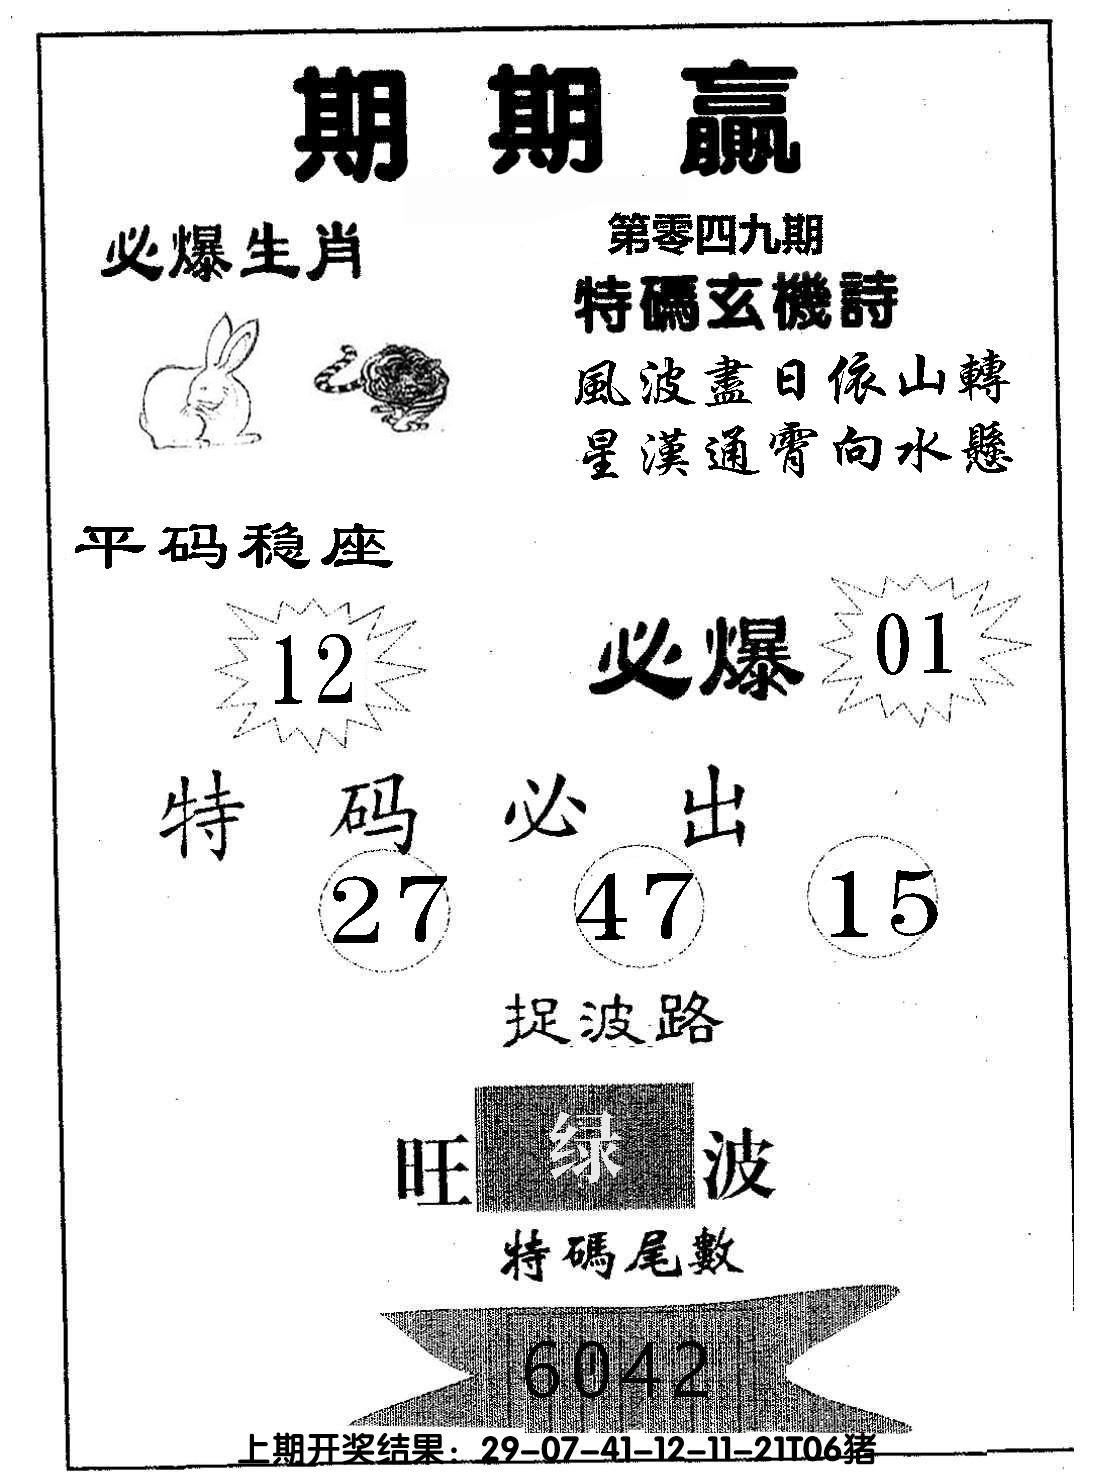 期期贏
必爆生肖
第零四九期
特碼玄機詩
風波盡日依山轉
星漢通霄向水懸
平码稳座
12
必爆 01
特码必出
27 47 15
捉波路
旺 绿 波
特碼尾數
6042
上期开奖结果：29-07-41-12-11-21T06猪